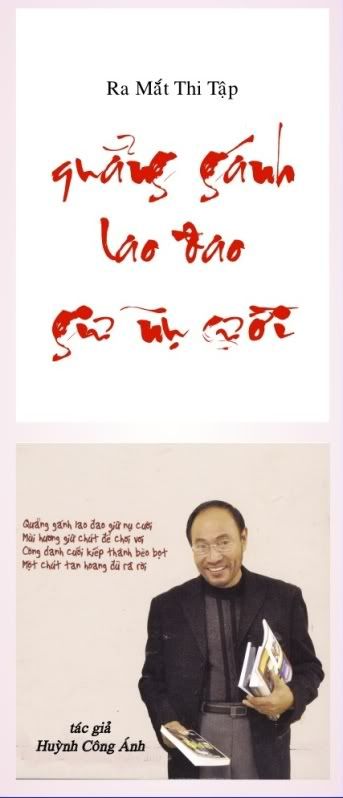 Ra Mắt Thi Tập
quẳng gánh
lao đao
giữ nụ cười
Quẳng gánh lao đao giữ nụ cười
Mùi hương giữ chút để chơi vơi
Công danh cuối kiếp thành bèo bọt
Một chút tan hoang đủ rã rời
tác giả
Huỳnh Công Ánh